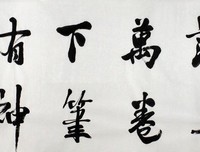 萬卷
下筆
有神